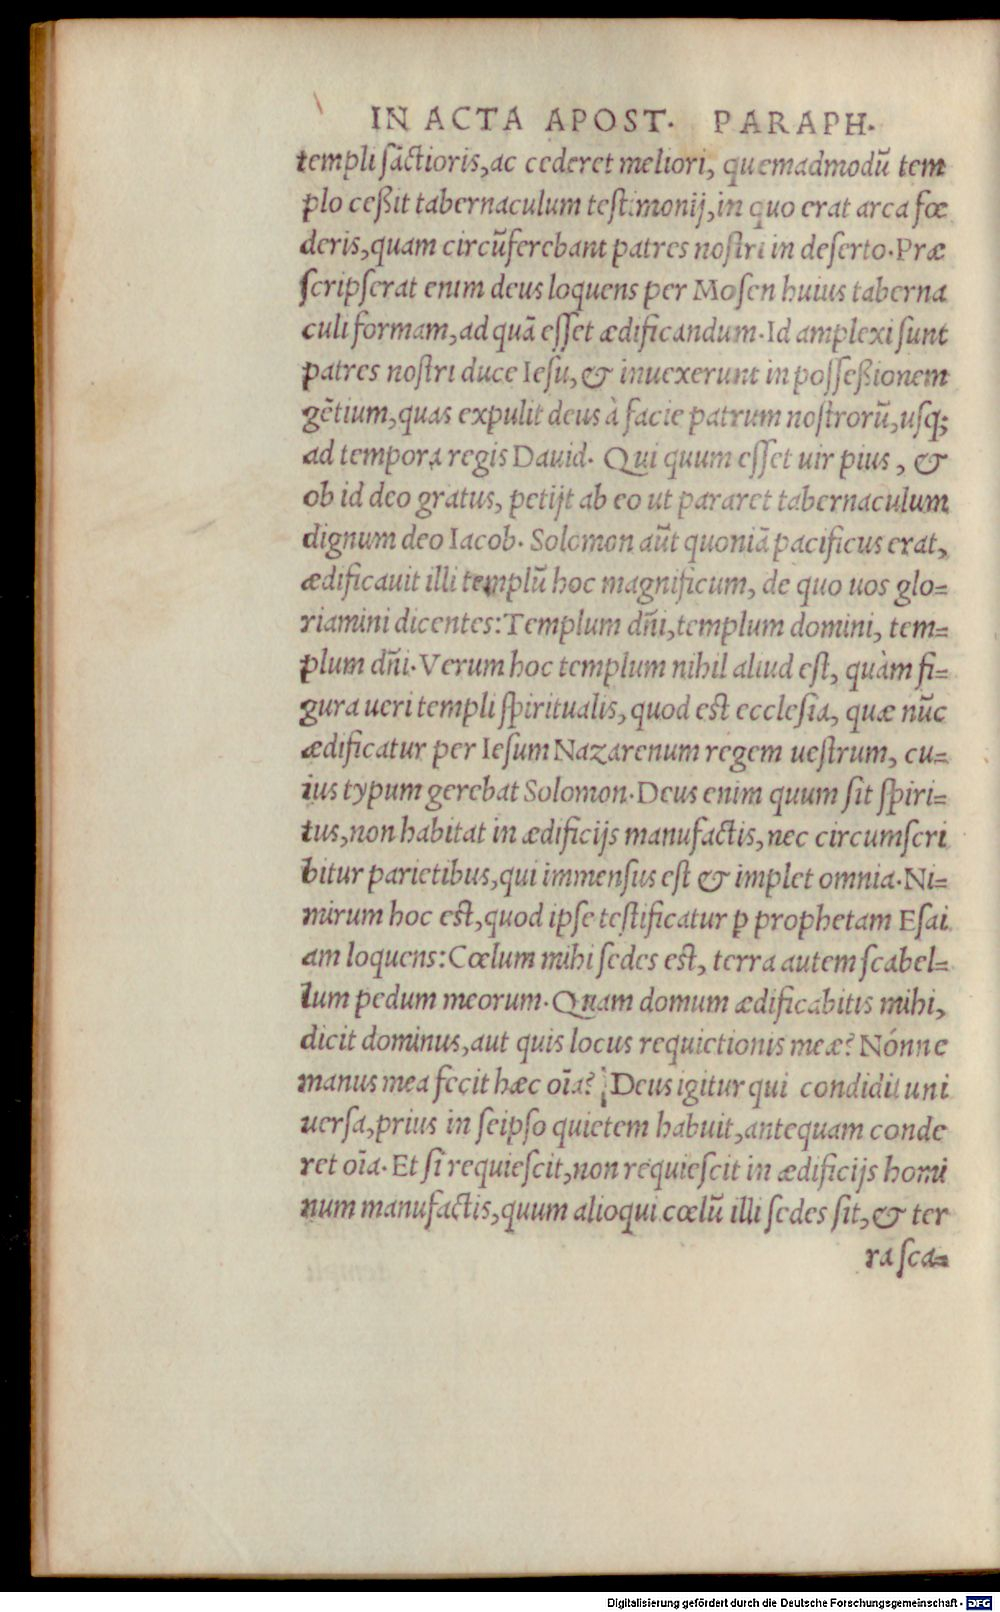 IN ACTA APOST. PARAPH.
templi sãctioris, ac cederet meliori, quemadmodũ tem
plo ceßit tabernaculum testimonij, in quo erat arca fœ
deris, quam circũferebant patres nostri in deserto. Præ
scripserat enim deus loquens per Mosen huius taberna
culi formam, ad quã esset ædificandum. Id amplexi sunt
patres nostri duce Iesu, & inuexerunt in posseßionem
gẽtium, quas expulit deus à facie patrum nostrorũ, usq;
ad tempora regis Dauid. Qui quum esset uir pius, &
ob id deo gratus, petijt ab eo ut pararet tabernaculum
dignum deo Iacob. Solomon aũt quoniã pacificus erat,
ædificauit illi templũ hoc magnificum, de quo uos glo=
riamini dicentes: Templum dñi, templum domini, tem=
plum dñi. Verum hoc templum nihil aliud est, quàm fi=
gura ueri templi spiritualis, quod est ecclesia, quæ nũc
ædificatur per Iesum Nazarenum regem uestrum, cu=
ius typum gerebat Solomon. Deus enim quum sit spiri=
tus, non habitat in ædificijs manufactis, nec circumscri
bitur parietibus, qui immensus est & implet omnia. Ni=
mirum hoc est, quod ipse testificatur ꝑ prophetam Esai
am loquens: Cœlum mihi sedes est, terra autem scabel=
lum pedum meorum. Quam domum ædificabitis mihi,
dicit dominus, aut quis locus requietionis meæ? Nónne
manus mea fecit hæc oĩa? Deus igitur qui condidit uni
uersa, prius in seipso quietem habuit, antequam conde
ret oĩa. Et si requiescit, non requiescit in ædificijs homi
num manufactis, quum alioqui cœlũ illi sedes sit, & ter
ra sca=
Digitalisierung gefördert durch die Deutsche Forschungsgemeinschaft - DFG